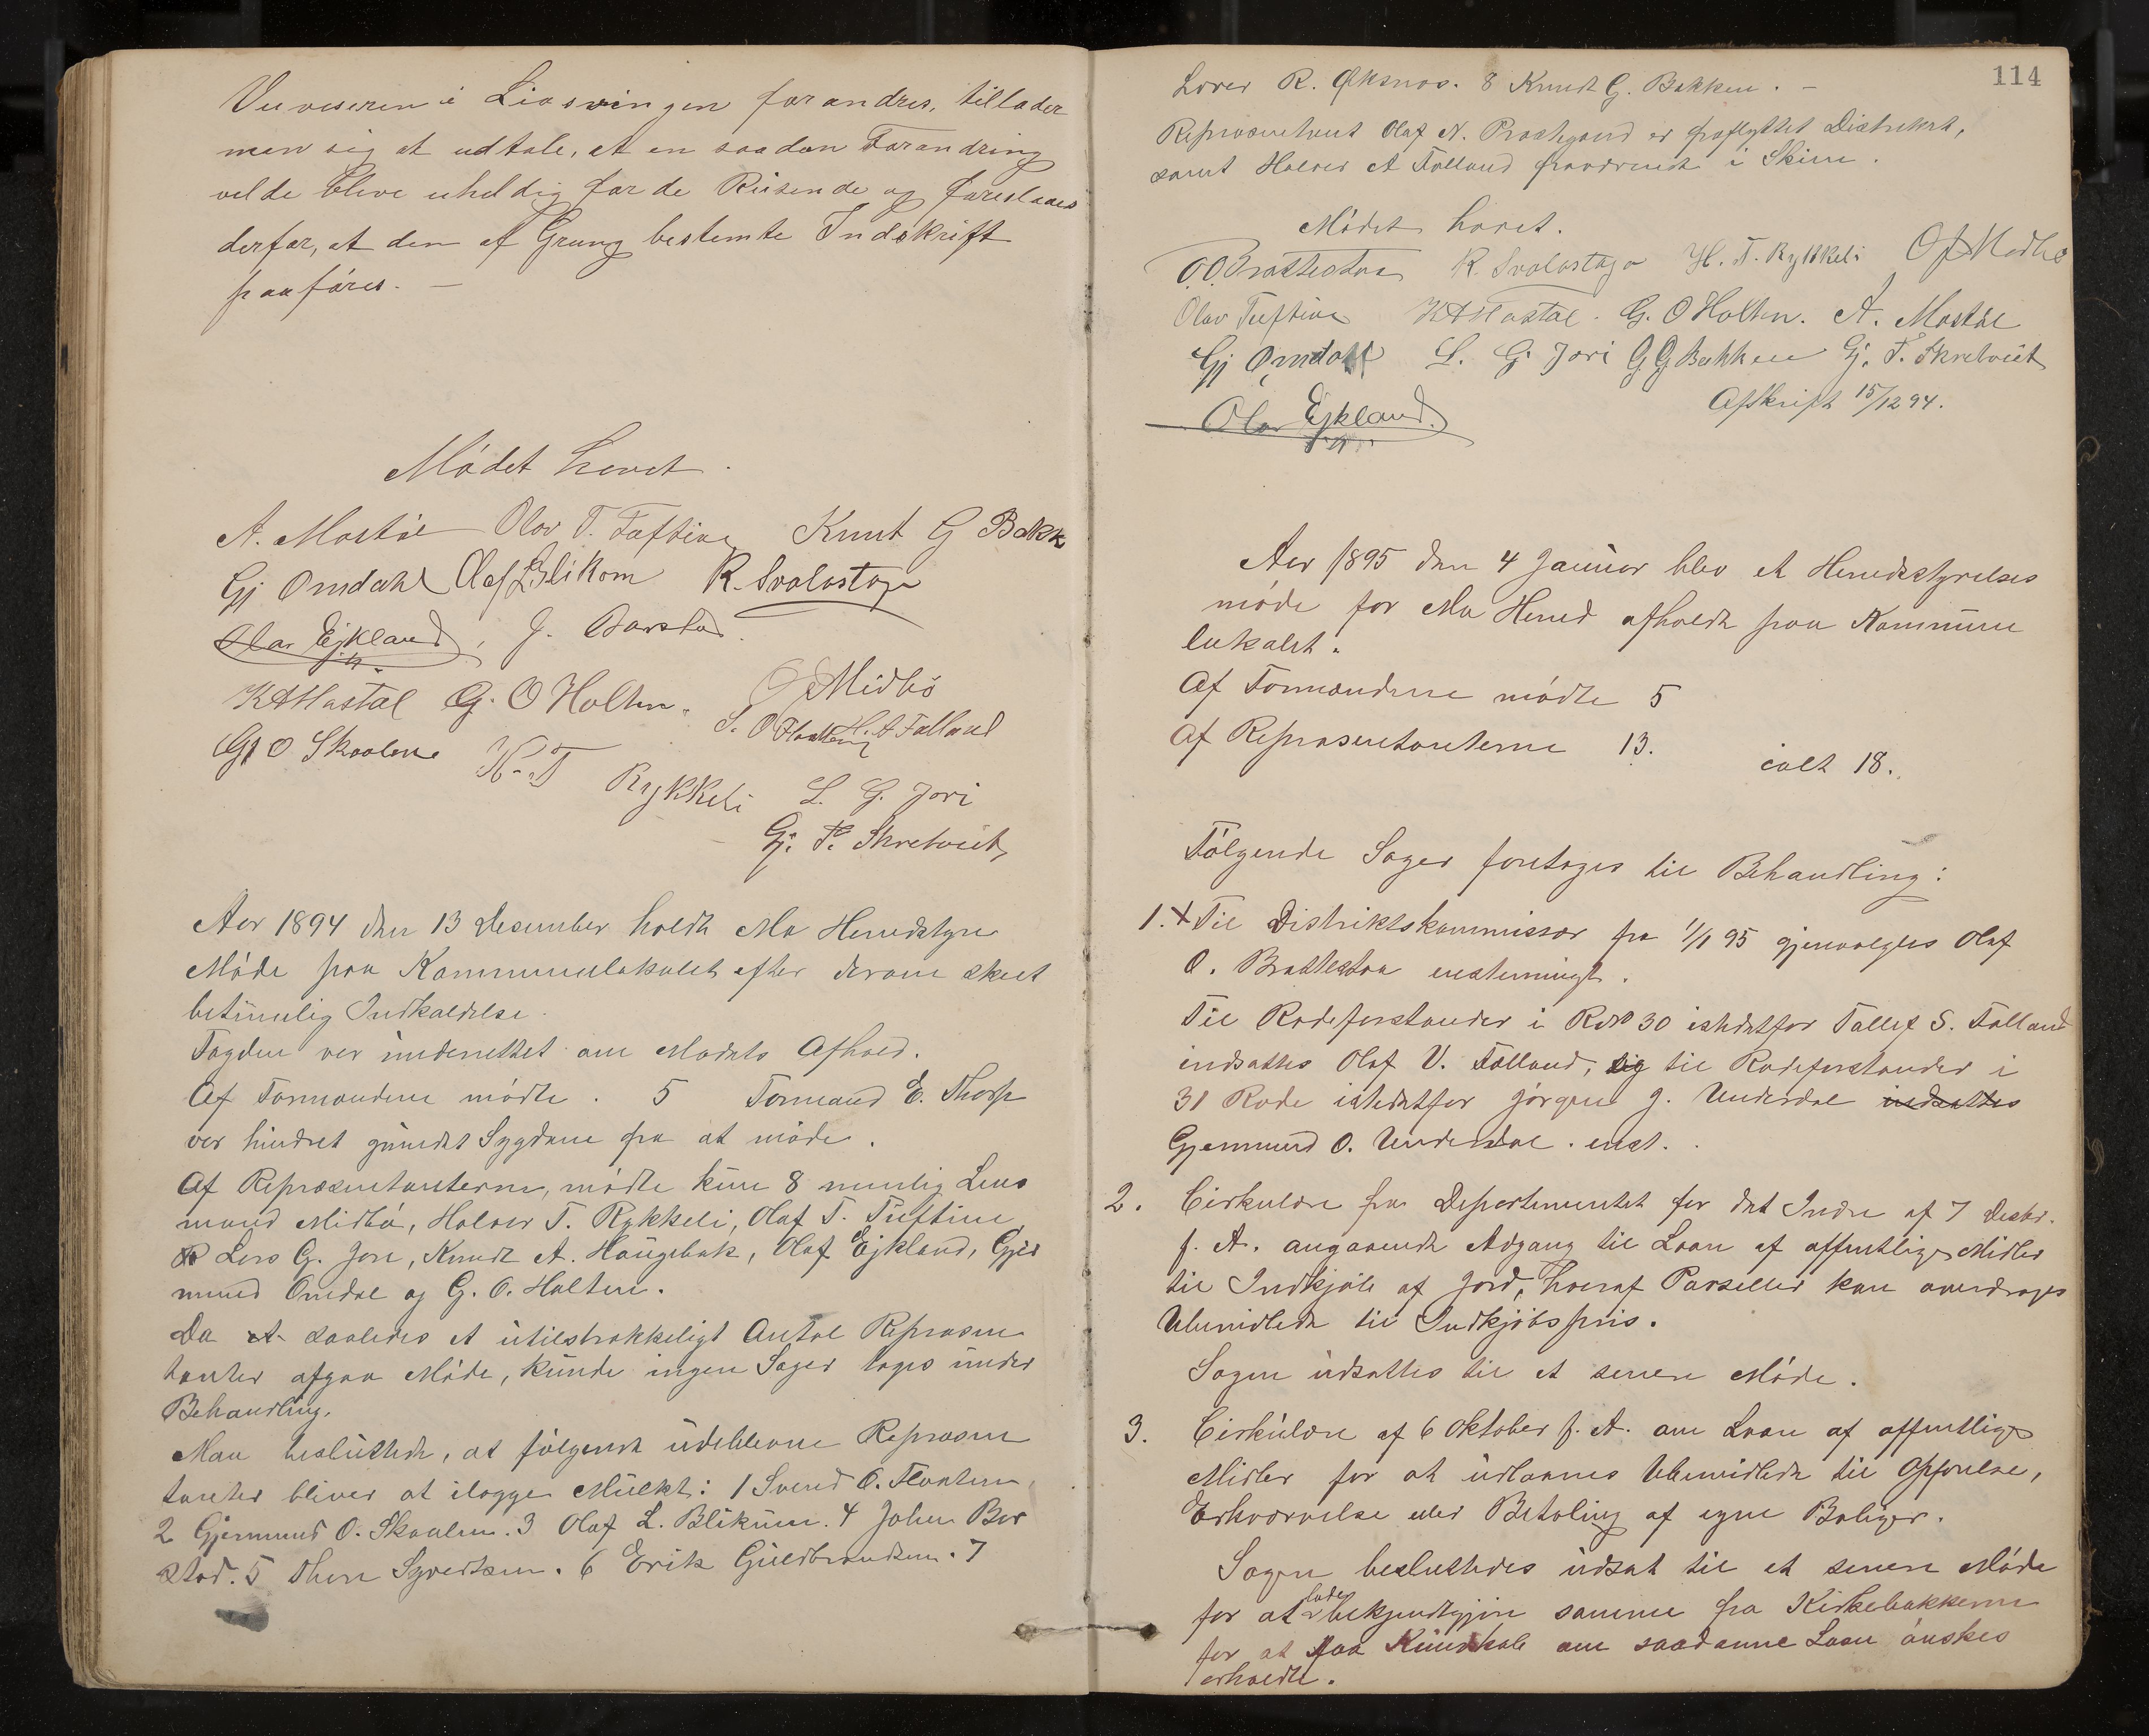 Veiviseren i Liosvingen forandres, tillader
man sig at udtale, at en saadan Forandring
vilde blive uheldig for de Reisende og foreslaaes
derfor, at den af Grung bestemte Indskrift
paaføres. —
Mødet hævet.
A. Mostøl Olav T. Tuftine Knut G Bakk
Gj Omdahl Olaf L Blikom R. Svalastoga
Olav Ejkland, J. Barstad.
K A Hastal G. O Holten. O J Midbö
S. O Flaaten H. A Falland
Gj O Skaalene H. T Rykkeli L. G. Jori
Gj. T. Skretveit
Aar 1894 den 13 Desember holdt Mo Herredstyre
Møde paa Kommunelokalet efter derom skeet
betimelig Indkaldelse.
Fogden var underrettet om Mødets Afhold.
Af Formændene mødte . 5 Formand E. Thorp
var hindret grundet Sygdom fra at møde.
Af Repræsentanterne, mødte kun 8 nemlig Lens
mand Midbø, Halvor T. Rykkeli, Olaf T. Tuftine
Lars G. Jore, Knudt A. Haugebak, Olaf Ejkland, Gjer
mund Omdal og G. O. Holten.
Da saaledes et utilstrækkeligt Antal Repræsen
tanter afgav Møde, kunde ingen Sager tages under
Behandling.
Man besluttede, at følgende udeblevne Repræsen
tanter bliver at ilægge Mulkt: 1 Svend O. Flaaten,
2 Gjermund O. Skaalen. 3 Olaf L. Blikum. 4 John Bor
stad. 5 Thore Syvertsen. 6 Erik Guldbrandsen. 7
114
Lover R. Øksnas. 8 Knudt G. Bakken. —
Repræsentant Olaf N. Præstgaard er fraflyttet Distriktet,
samt Halvor A Falland fraværende i Skien.
Mødet hævet.
O.O. Brattestaa K. Svalastoga H. T. Rykkeli O J Midbö
Olav Tuftine K A Hastal. G. O Holten. A. Mostøl
Gj Omdahl L. G. Jori G G Bakken Gj. T. Skretveit
Olav Ejkland. Afskrift 15/12 94.
Aar 1895 den 4 Januar blev et Herredsstyrelses
møde for Mo Herred afholdt paa Kommune
lokalet.
Af Formændene mødte 5
Af Repræsentanterne 13. ialt 18.
Følgende Sager foretoges til Behandling:
1. + Til Distriktskommissær fra 1/1 95 gjenvalgtes Olaf
O. Brattestaa enstemmigt.
Til Rodeforstander i Rode 30 istedetfor Tallef S. Falland
indsattes Olaf V. Falland, til Rodeforstander i
31 Rode istedetfor Jörgen J. Underdal indsattes
Gjermund O. Underdal. enst.
2. Cirkulære fra Departementet for det Indre af 7 Decbr.
f. A. angaaende Adgang til Laan af offentlige Midler
til Indkjøb af Jord, hvoraf Parseller kan overdrages
Ubemidlede til Indkjøbspris.
Sagen udsattes til et senere Møde.
3. Cirkulære af 6 Oktober f. A. om Laan af offentlige
Midler for at udlaanes Ubemidlede til Opførelse,
Erhvervelse eller Betaling af egne Boliger.
Sagen besluttedes udsat til et senere Møde
for at lade bekjendtgjøre samme fra Kirkebakkerne
for at faa Kundskab om saadanne Laan ønskes
erholdte.